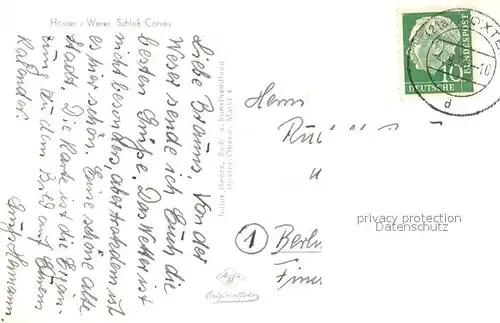 Höxter / Weser Schloß Corvey
Liebe Brauns, Von der
Weser sende ich Euch die
besten Grüße. Das Wetter ist
nicht besonders, aber trotzdem ist
es hier schön. Eine schöne alte
Stadt. Die Karte ist die Ergän-
zung zu dem Bild auf Eurem
Kalender.
Gruß Hermann.
Buch- u. Kunsthandlung
Höxter Markt 4
Agfa
Originalfoto
(21a) HÖXTE
10
d
10
DEUTSCHE
BUNDESPOST
Herrn
Ru
u
1 Berlin
privacy protection
Datenschutz